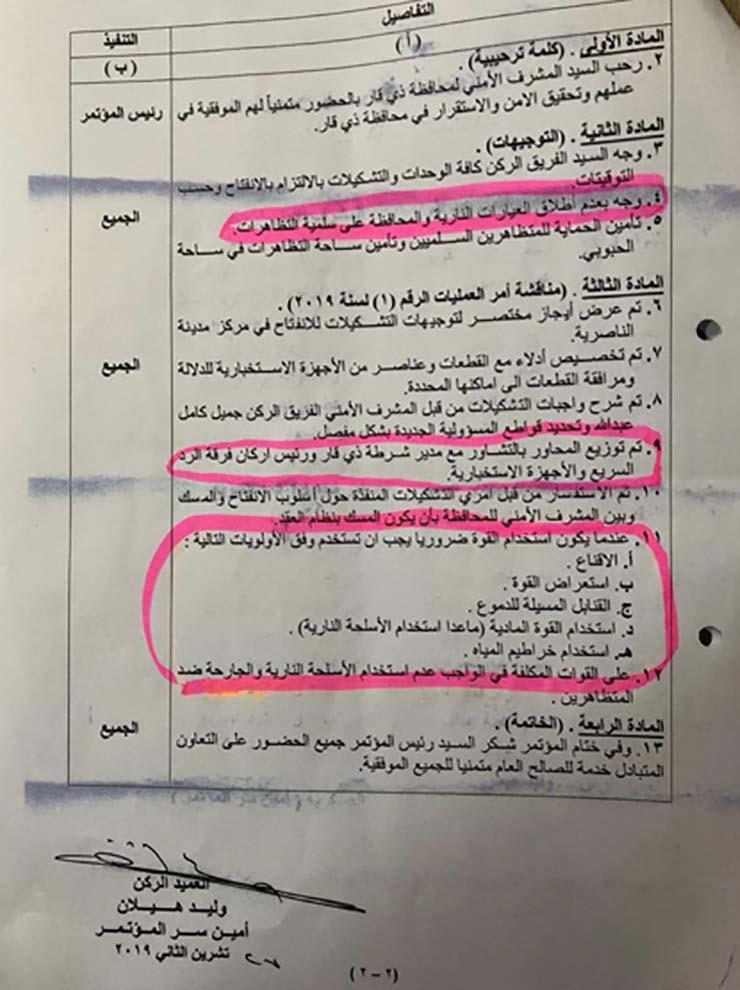 التفاصيل
التنفيذ
( أ )
( ب )
المادة الأولى . (كلمة ترحيبية) .
٢. رحب السيد المشرف الأمني لمحافظة ذي قار بالحضور متمنياً لهم الموفقية في
عملهم وتحقيق الامن والاستقرار في محافظة ذي قار.
رئيس المؤتمر
المادة الثانية . (التوجيهات) .
٣. وجه السيد الفريق الركن كافة الوحدات والتشكيلات بالالتزام بالانفتاح وحسب
التوقيتات.
٤. وجه بعدم أطلاق العيارات النارية والمحافظة على سلمية التظاهرات.
الجميع
٥. تأمين الحماية للمتظاهرين السلميين وتأمين ساحة التظاهرات في ساحة
الحبوبي.
المادة الثالثة . (مناقشة أمر العمليات الرقم (١) لسنة ٢٠١٩) .
٦. تم عرض أيجاز مختصر لتوجيهات التشكيلات للانفتاح في مركز مدينة
الناصرية.
٧. تم تخصيص أدلاء مع القطعات وعناصر من الأجهزة الاستخبارية للدلالة
الجميع
ومرافقة القطعات الى اماكنها المحددة.
٨. تم شرح واجبات التشكيلات من قبل المشرف الأمني الفريق الركن جميل كامل
عبدالله وتحديد قواطع المسؤولية الجديدة بشكل مفصل.
٩. تم توزيع المحاور بالتشاور مع مدير شرطة ذي قار ورئيس اركان فرقة الرد
السريع والأجهزة الاستخبارية.
١٠. تم الاستفسار من قبل أمري التشكيلات المنفذة حول أسلوب الانفتاح والمسك
وبين المشرف الأمني للمحافظة بأن يكون المسك بنظام العقد.
١١. عندما يكون استخدام القوة ضروريا يجب ان تستخدم وفق الأولويات التالية :
أ. الاقناع .
ب. استعراض القوة .
ج. القنابل المسيلة للدموع .
د. استخدام القوة المادية (ماعدا استخدام الأسلحة النارية) .
هـ. استخدام خراطيم المياه .
١٢. على القوات المكلفة في الواجب عدم استخدام الأسلحة النارية والجارحة ضد
المتظاهرين .
المادة الرابعة . (الخاتمة) .
الجميع
١٣. وفي ختام المؤتمر شكر السيد رئيس المؤتمر جميع الحضور على التعاون
المتبادل خدمة للصالح العام متمنيا للجميع الموفقية.
العميد الركن
وليد هيلان
أمين سر المؤتمر
تشرين الثاني ٢٠١٩
(٢ - ٢)